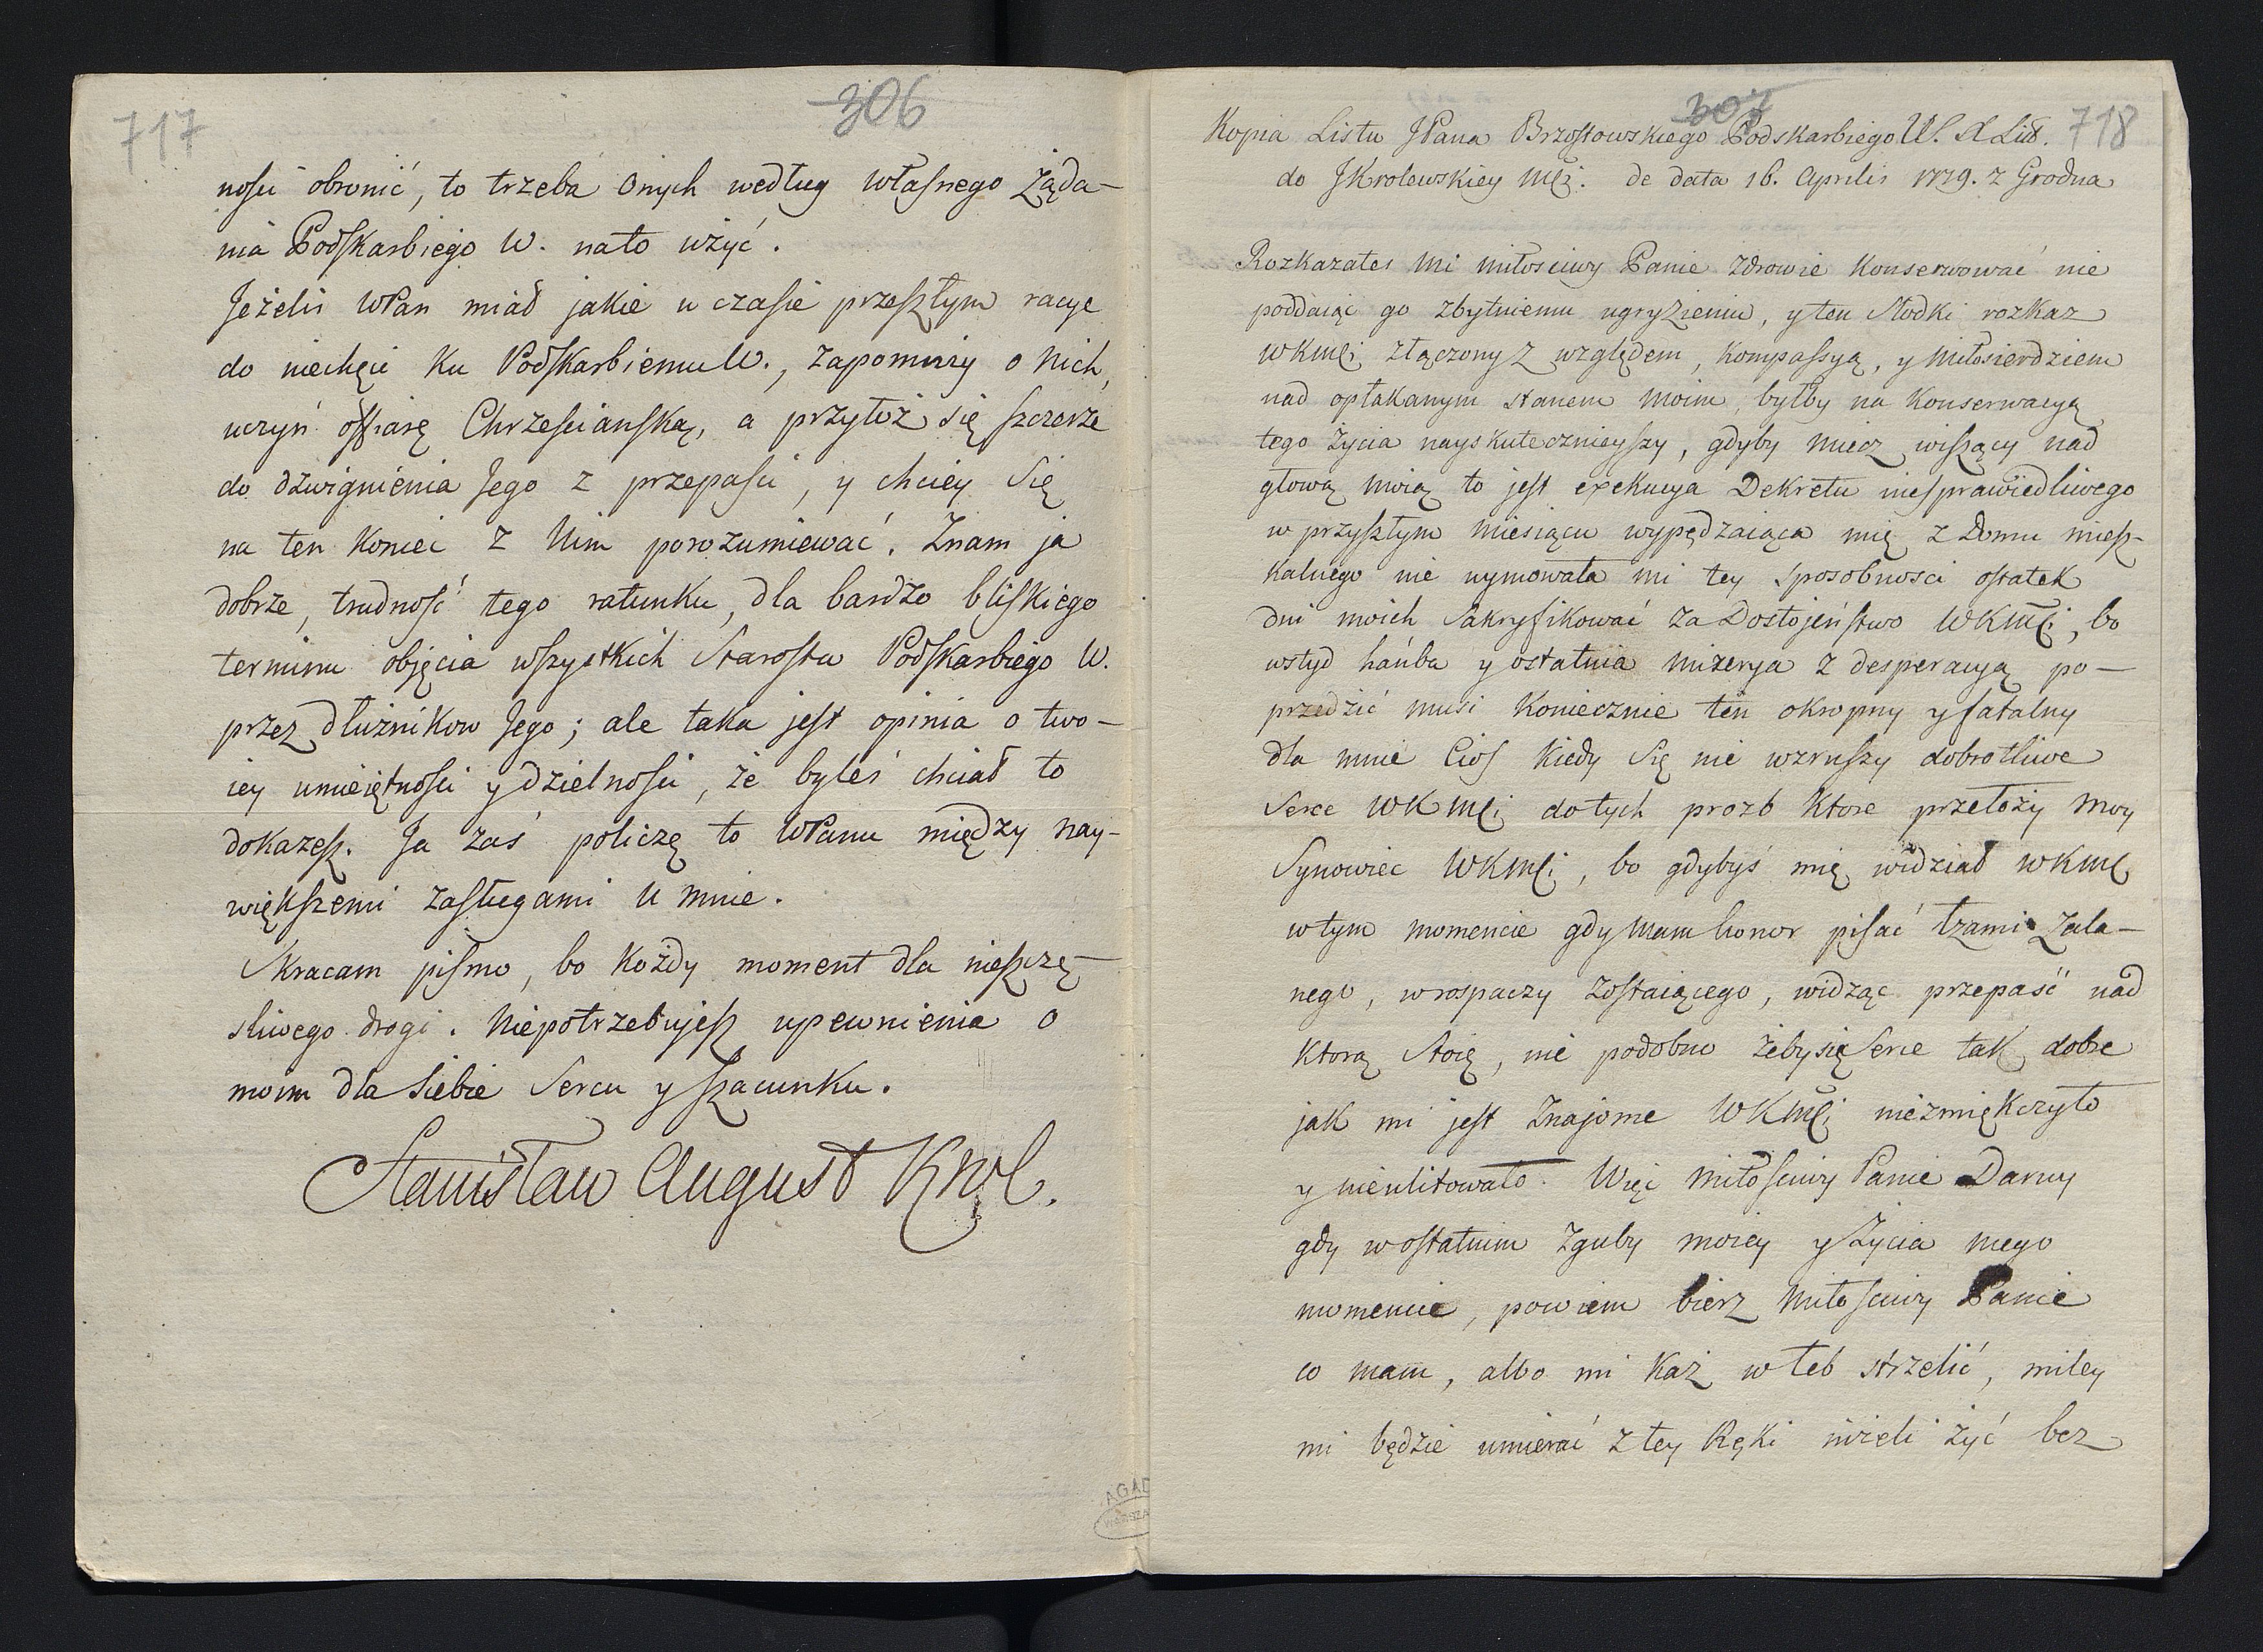 717
306
nosci obronić, to trzeba onych według własnego żąda-
nia Podskarbiego W. nato użyć.
Jeżeliś WPan miał jakie w czasie przeszłym racye
do niechęci ku Podskarbiemu W., zapomniy o nich,
uczyń offiarę Chrzescianską, a przyłoż się szczerze
do dzwignienia Jego z przepasci, y chciey się
na ten koniec z Nim porozumiewać. Znam ja
dobrze, trudność tego ratunku, dla bardzo bliskiego
terminu objęcia wszystkich Starostw Podskarbiego W.
przez dłużnikow Jego; ale taka jest opinia o two-
iey umieiętnosci y dzielnosci, że byleś chciał to
dokażesz. Ja zaś policzę to WPanu między nay-
większemi zasługami u mnie.
Skracam pismo, bo każdy moment dla nieszczę-
sliwego drogi. Niepotrzebujesz upewnienia o
moim dla siebie sercu y szacunku.
Stanisław August Krol.
307
718
Kopia Listu JPana Brzostowskiego Podskarbiego W. X Lit.
do JKrolewskiey Mci. de data 16. Aprilis 1779. z Grodna
Rozkazałeś mi miłosciwy Panie zdrowie konserwować nie
poddaiąc go zbytniemu ugryzieniu, y ten słodki rozkaz
WKMci złączony z względem, kompassyą, y miłosierdziem
nad opłakanym stanem moim, byłby na konserwacyą
tego życia nayskutecznieyszy, gdyby miecz wiszący nad
głową moią to jest exekucya Dekretu niesprawiedliwego
w przyszłym miesiącu wypędzaiąca mię z Domu miesz-
kalnego nie uymowała mi tey sposobnosci ostatek
dni moich sakryfikować za Dostojeństwo WKMci, bo
wstyd hańba y ostatnia mizerya z desperacyą po-
przedzić musi koniecznie ten okropny y fatalny
dla mnie Cios kiedy się nie wzruszy dobrotliwe
Serce WKMci do tych prozb ktore przełoży moy
Synowiec WKMci, bo gdybyś mię widział WKMć
w tym momencie gdy mam honor pisać łzami zala-
nego, w rospaczy zostaiącego, widząc przepaść nad
ktorą stoię, nie podobno żeby się Serce tak dobre
jak mi jest znajome WKMci niezmiękczyło
y nieulitowało. Więc miłosciwy Panie Daruy
gdy w ostatnim zguby moiey y życia mego
momencie, powiem bierz miłosciwy Panie
co mam, albo mi każ w łeb strzelić, miley
mi będzie umierać z tey Ręki niżeli żyć bez
AGAD